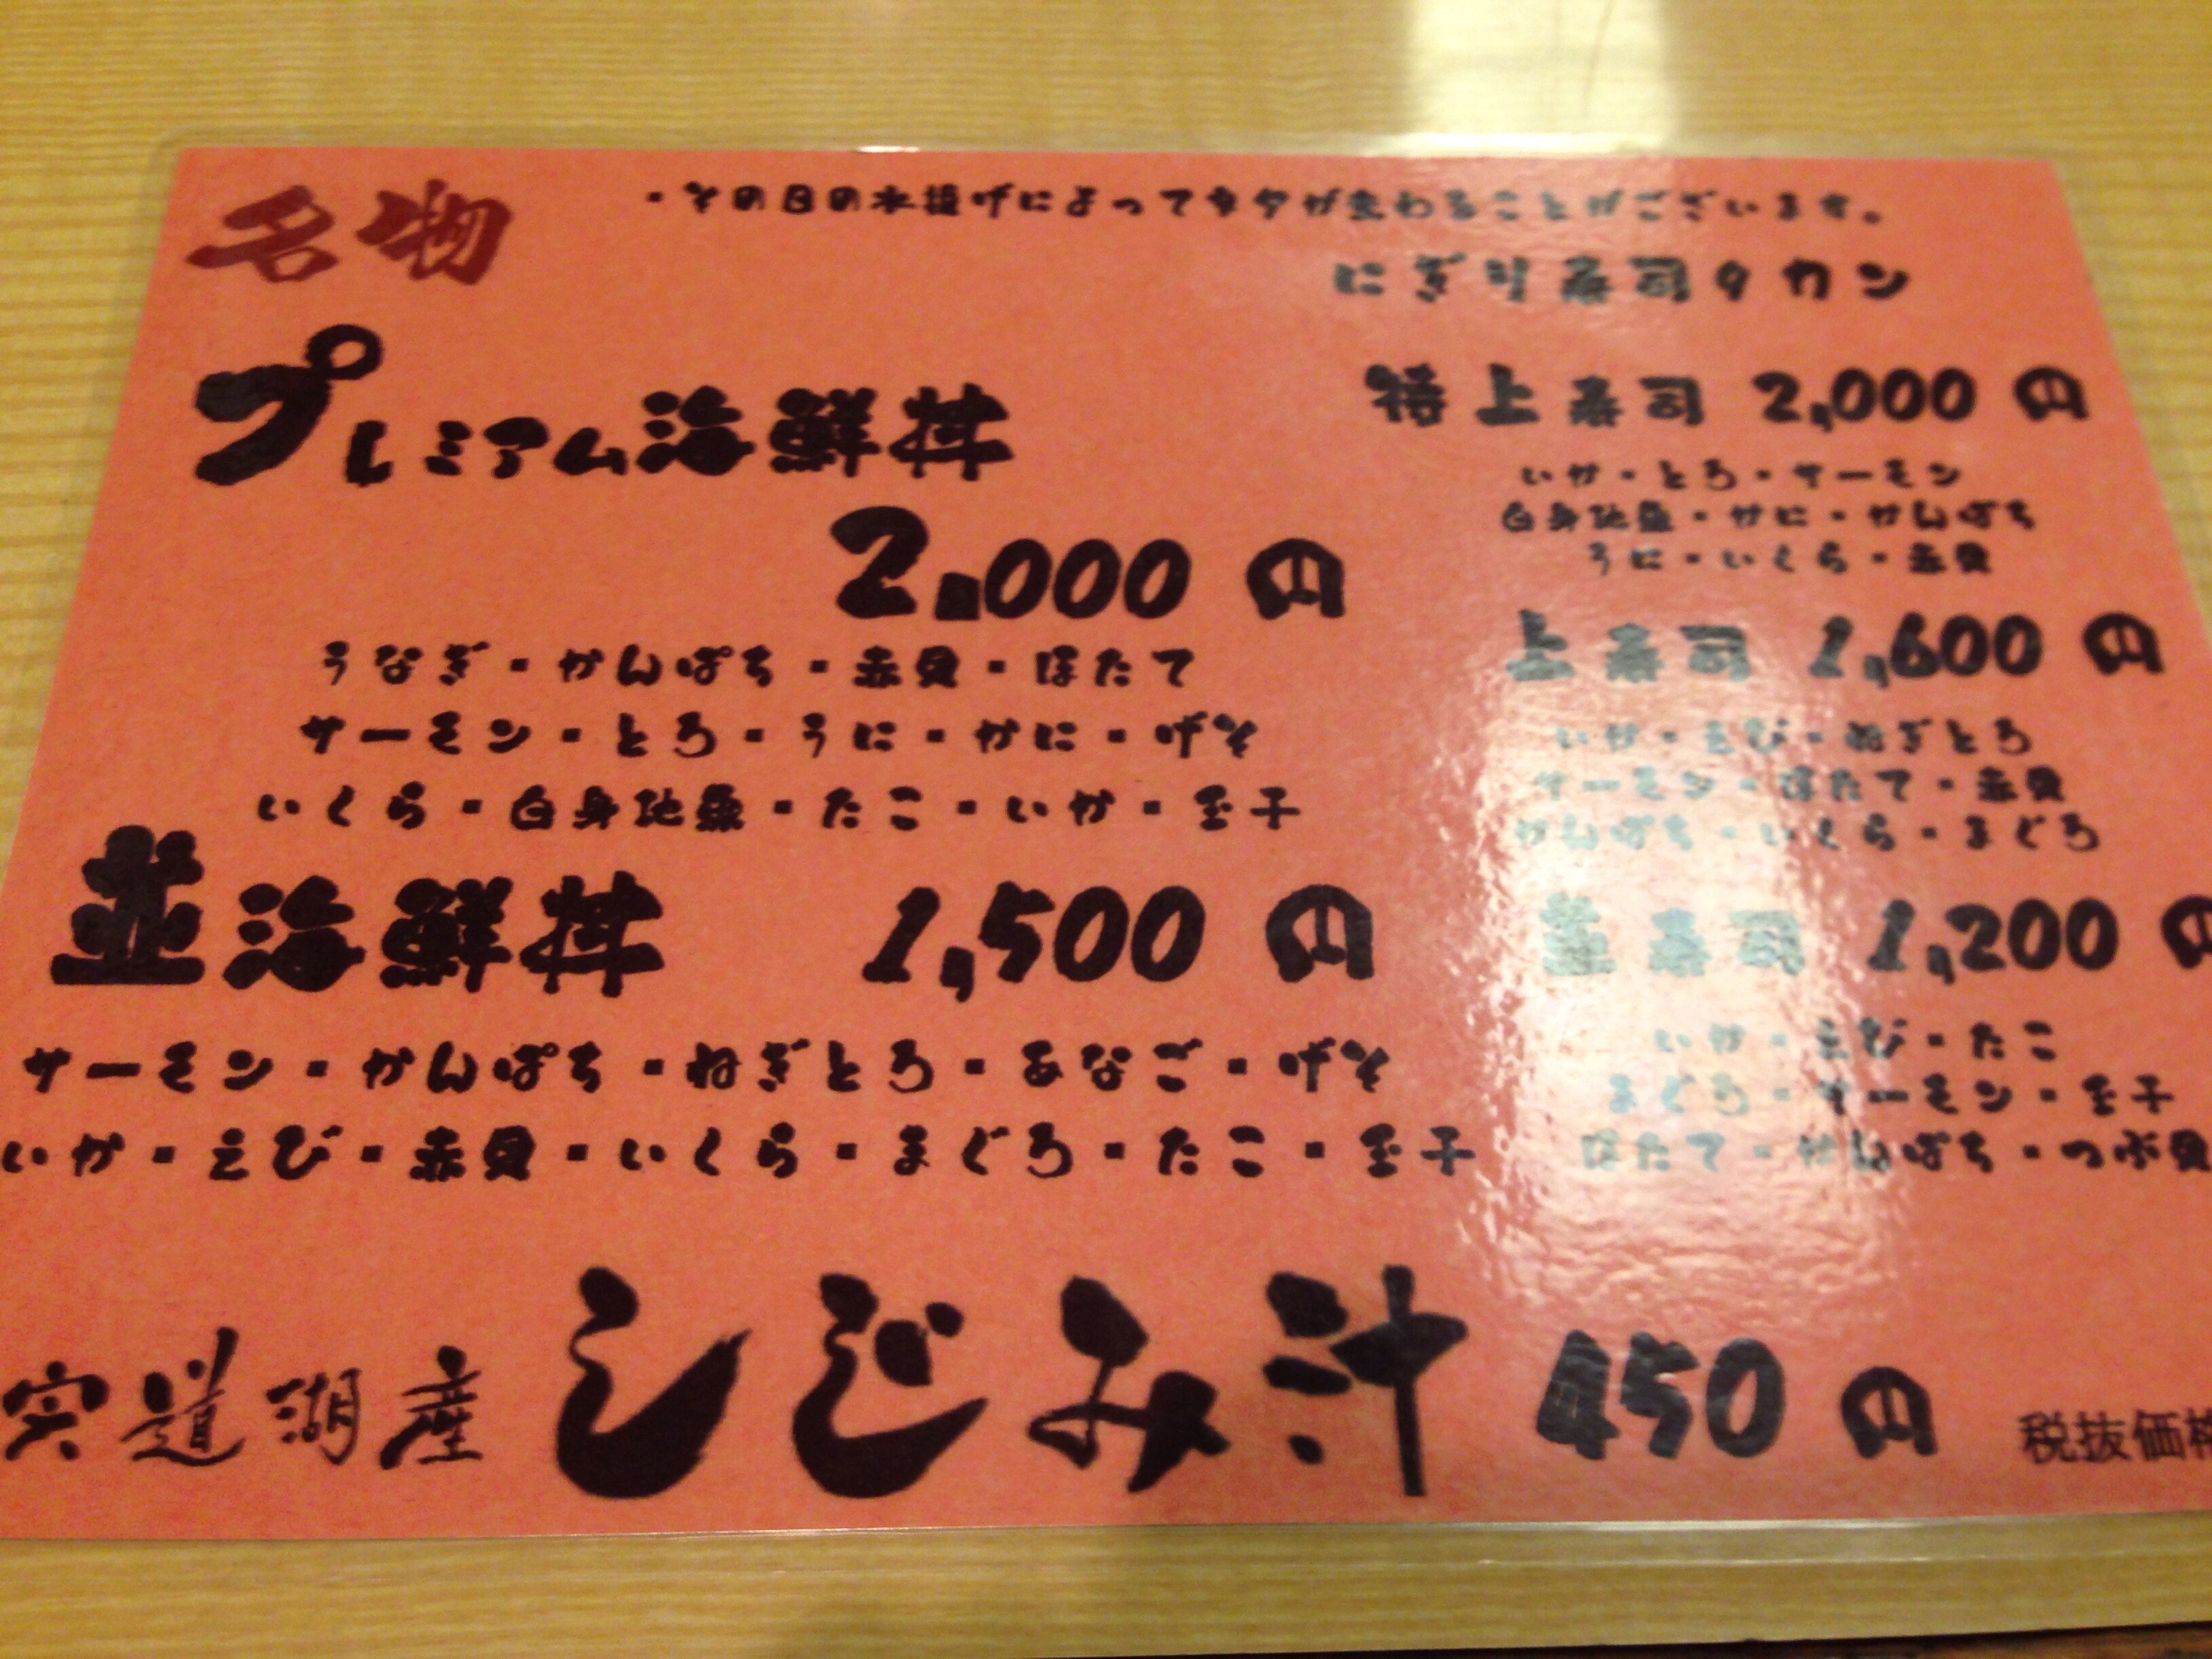 名物
・その日の水揚げによってネタが変わることがございます。
プレミアム海鮮丼
2,000 円
うなぎ・かんぱち・赤貝・ほたて
サーモン・とろ・うに・かに・げそ
いくら・白身地魚・たこ・いか・玉子
並海鮮丼 1,500 円
サーモン・かんぱち・ねぎとろ・あなご・げそ
いか・えび・赤貝・いくら・まぐろ・たこ・玉子
にぎり寿司9カン
特上寿司 2,000 円
いか・とろ・サーモン
白身地魚・かに・かんぱち
うに・いくら・赤貝
上寿司 1,600 円
いか・えび・ねぎとろ
サーモン・ほたて・赤貝
かんぱち・いくら・まぐろ
並寿司 1,200 円
いか・えび・たこ
まぐろ・サーモン・玉子
ほたて・かんぱち・つぶ貝
宍道湖産 しじみ汁 450 円
税抜価格